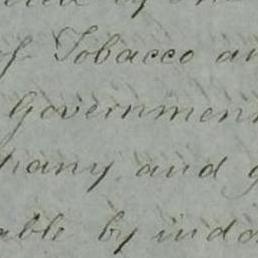 of Tobacco an
Government
pany and g
able by indo